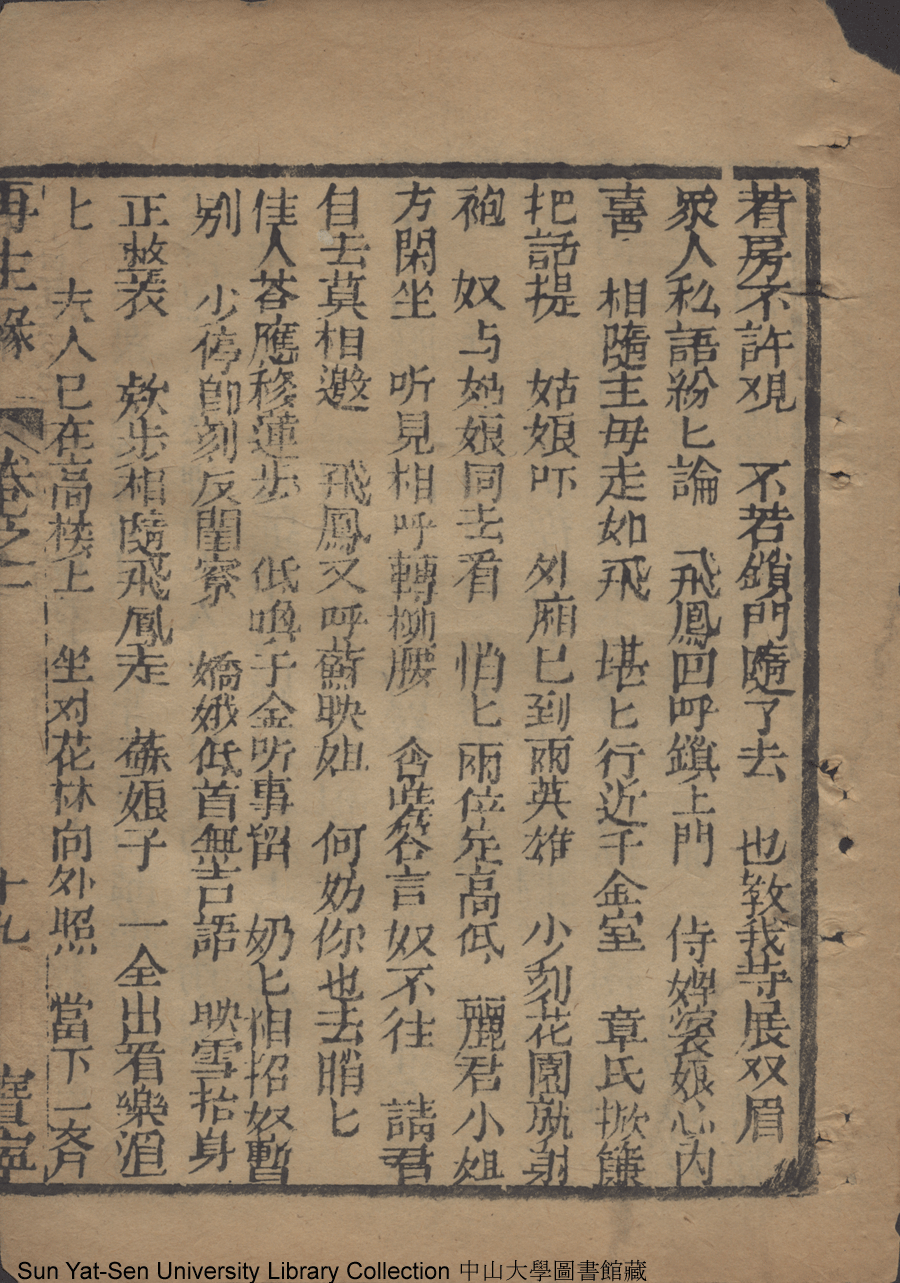 着房不許𮗚 不若鎖門隨了去 也教我等展双眉
衆人私語紛匕論 飛鳳回呼鎖上門 侍婢裳娘心内
喜 相隨主毋走如飛 堪匕行近千金室 章氏掀簾
把話提 姑娘吓 外廂已到兩英雄 少刻花園就射
袍 奴与姑娘同去看 悄匕兩位定高低 麗君小姐
方閑坐 听見相呼轉柳腰 含羞答言奴不往 請君
自去莫相邀 飛鳳又呼蘇映姐 何妨你也去睄匕
佳人荅應移蓮步 低喚千金听事留 奶匕相招奴暫
别 少停即刻反閨寮 嬌娥低首無言語 映雪抬身
正整裝 欸步相隨飛鳳走 蘇娘子 一仝出看樂滔
匕 夫人已在高楼上 坐对花林向外照 當下一齊
再生緣 卷之二 十九 寳寧
Sun Yat-Sen University Library Collection 中山大學圖書館藏